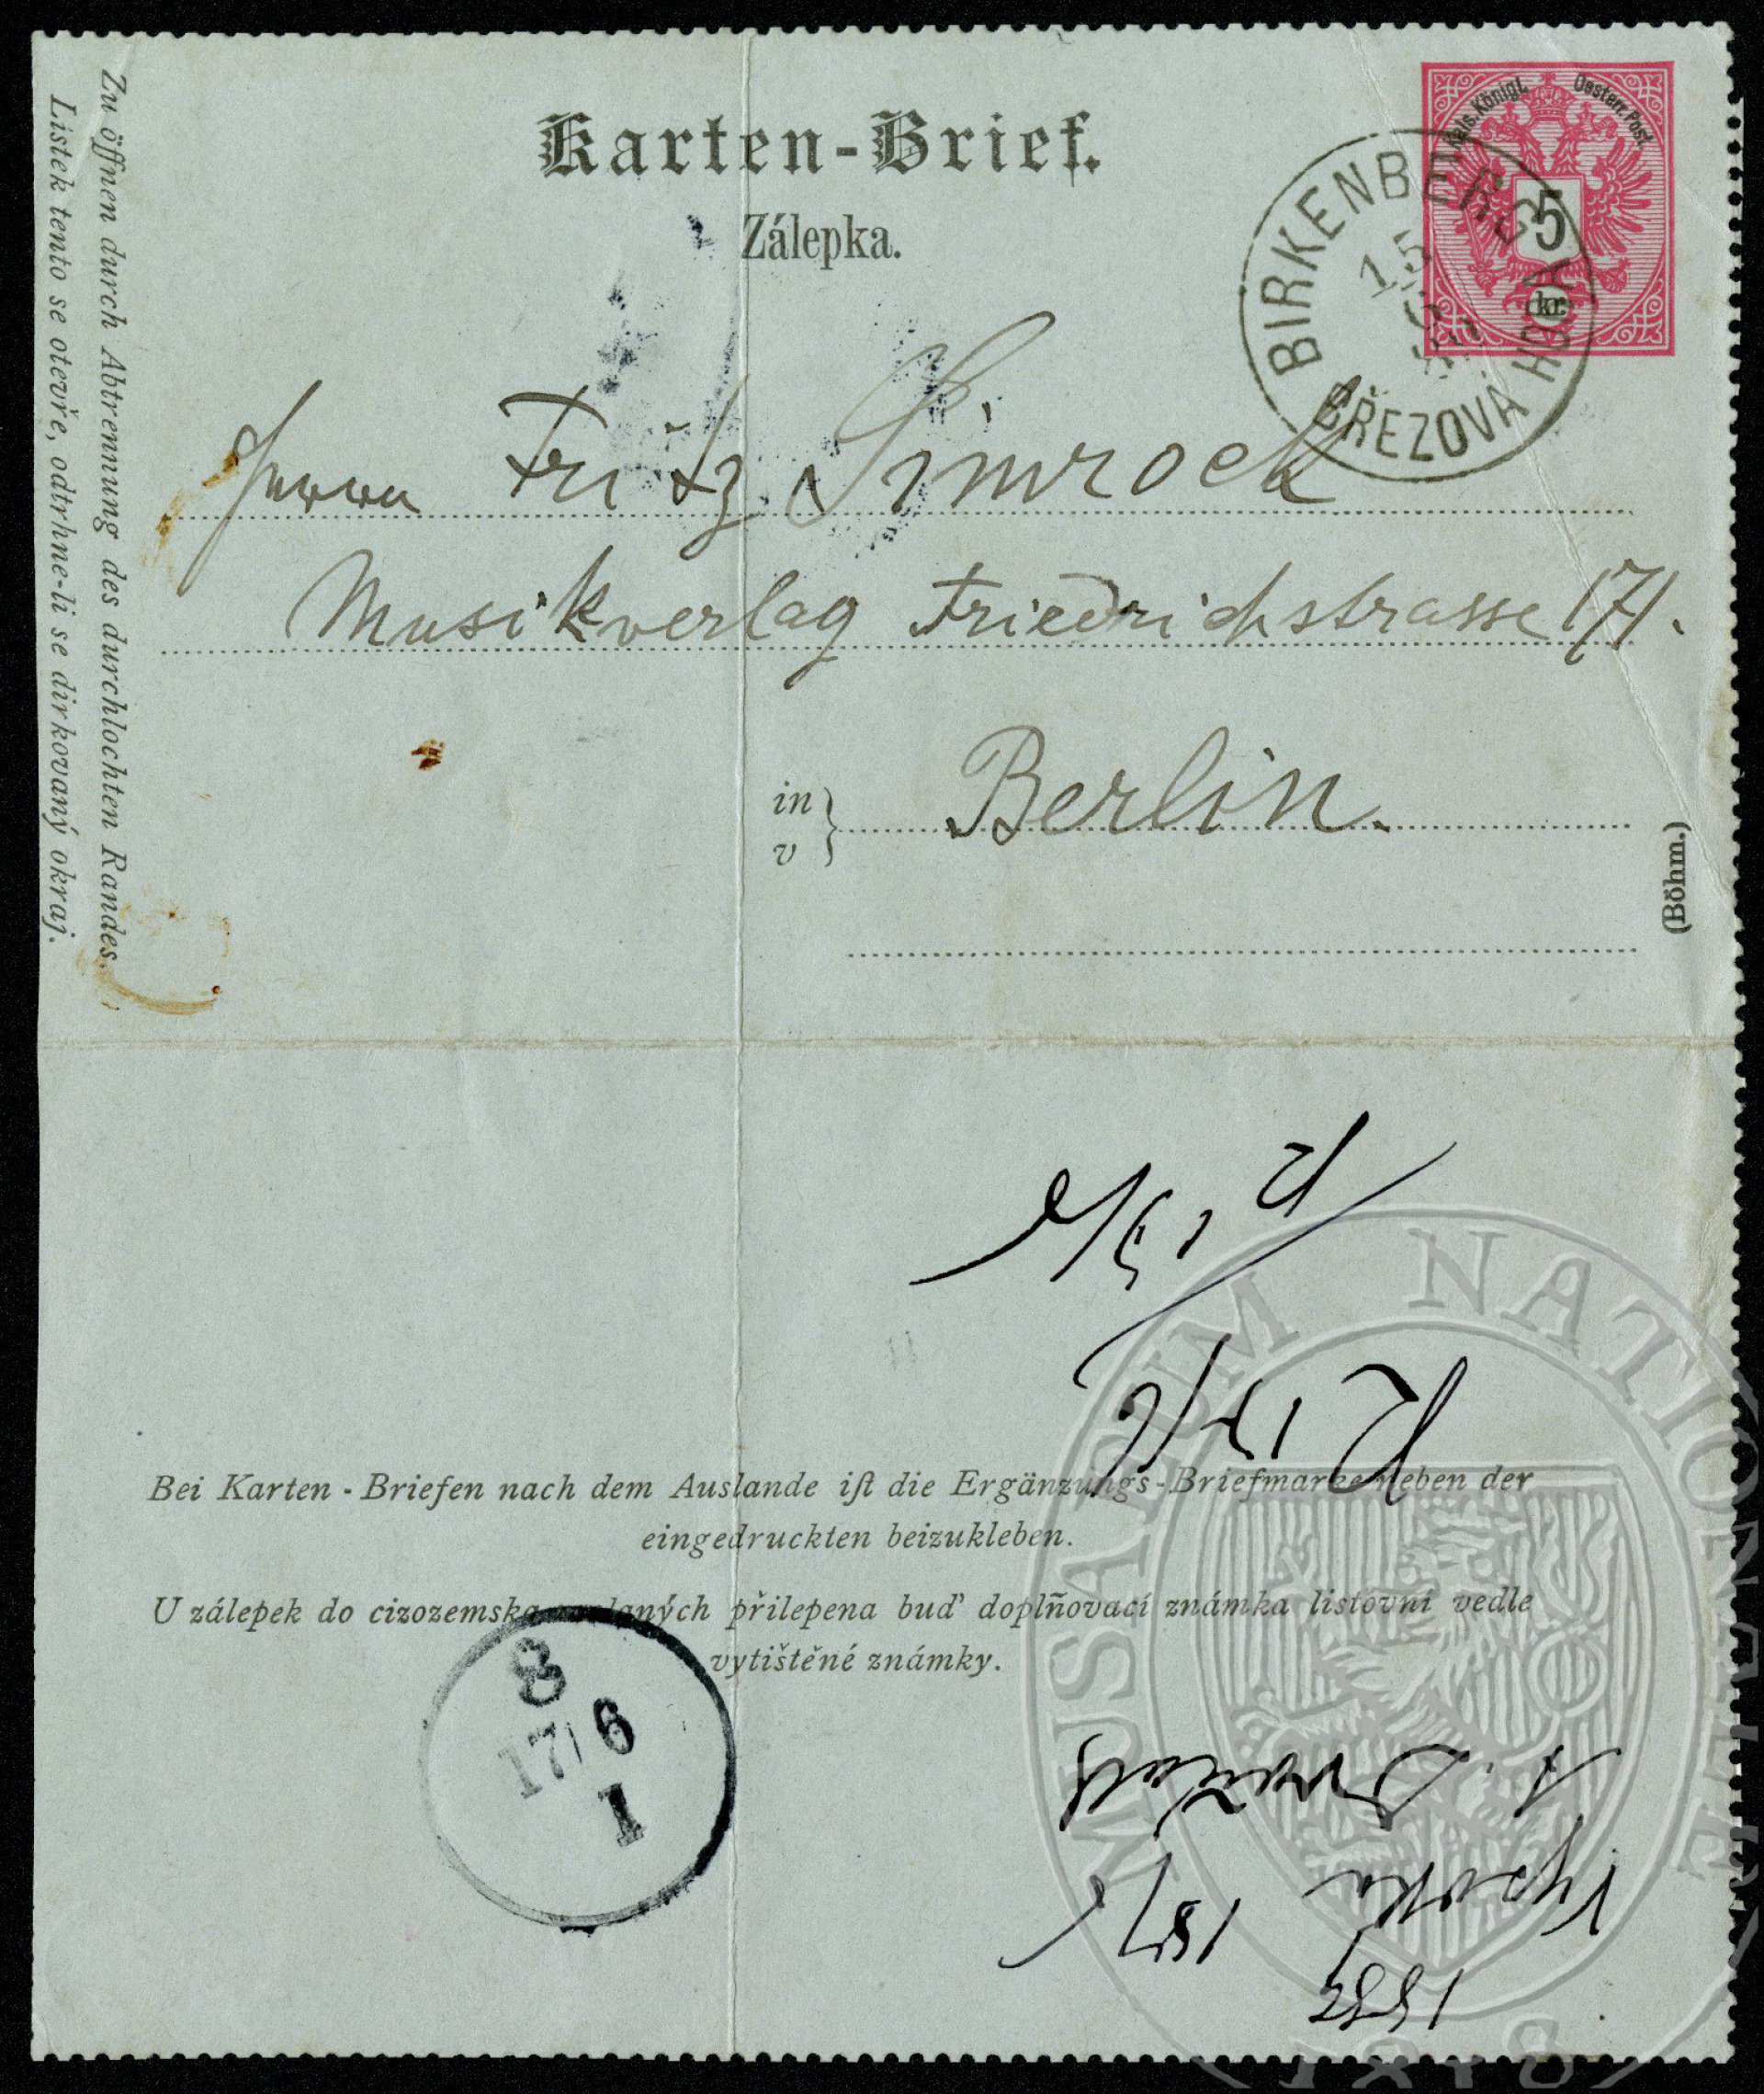 Karten-Brief.
Zálepka.
Kais. Königl. Oesterr. Post
5
kr.
BIRKENBERG
15
BŘEZOVÁ HORA
Herrn Fritz Simrock
Musikverlag Friedrichstrasse 171.
in
v
Berlin.
(Böhm.)
Zu öffnen durch Abtrennung des durchlochten Randes.
Lístek tento se otevře, odtrhne-li se dirkovaný okraj.
R 15/6
R 17/6
Bei Karten-Briefen nach dem Auslande iſt die Ergänzungs-Briefmarke neben der
eingedruckten beizukleben.
U zálepek do cizozemska zaslaných přilepena buď doplňovací známka listovní vedle
vytištěné známky.
8
17/6
1
1887
Vysoka 15/6
A. Dvořák
MUSAEUM NATIONALE
1818